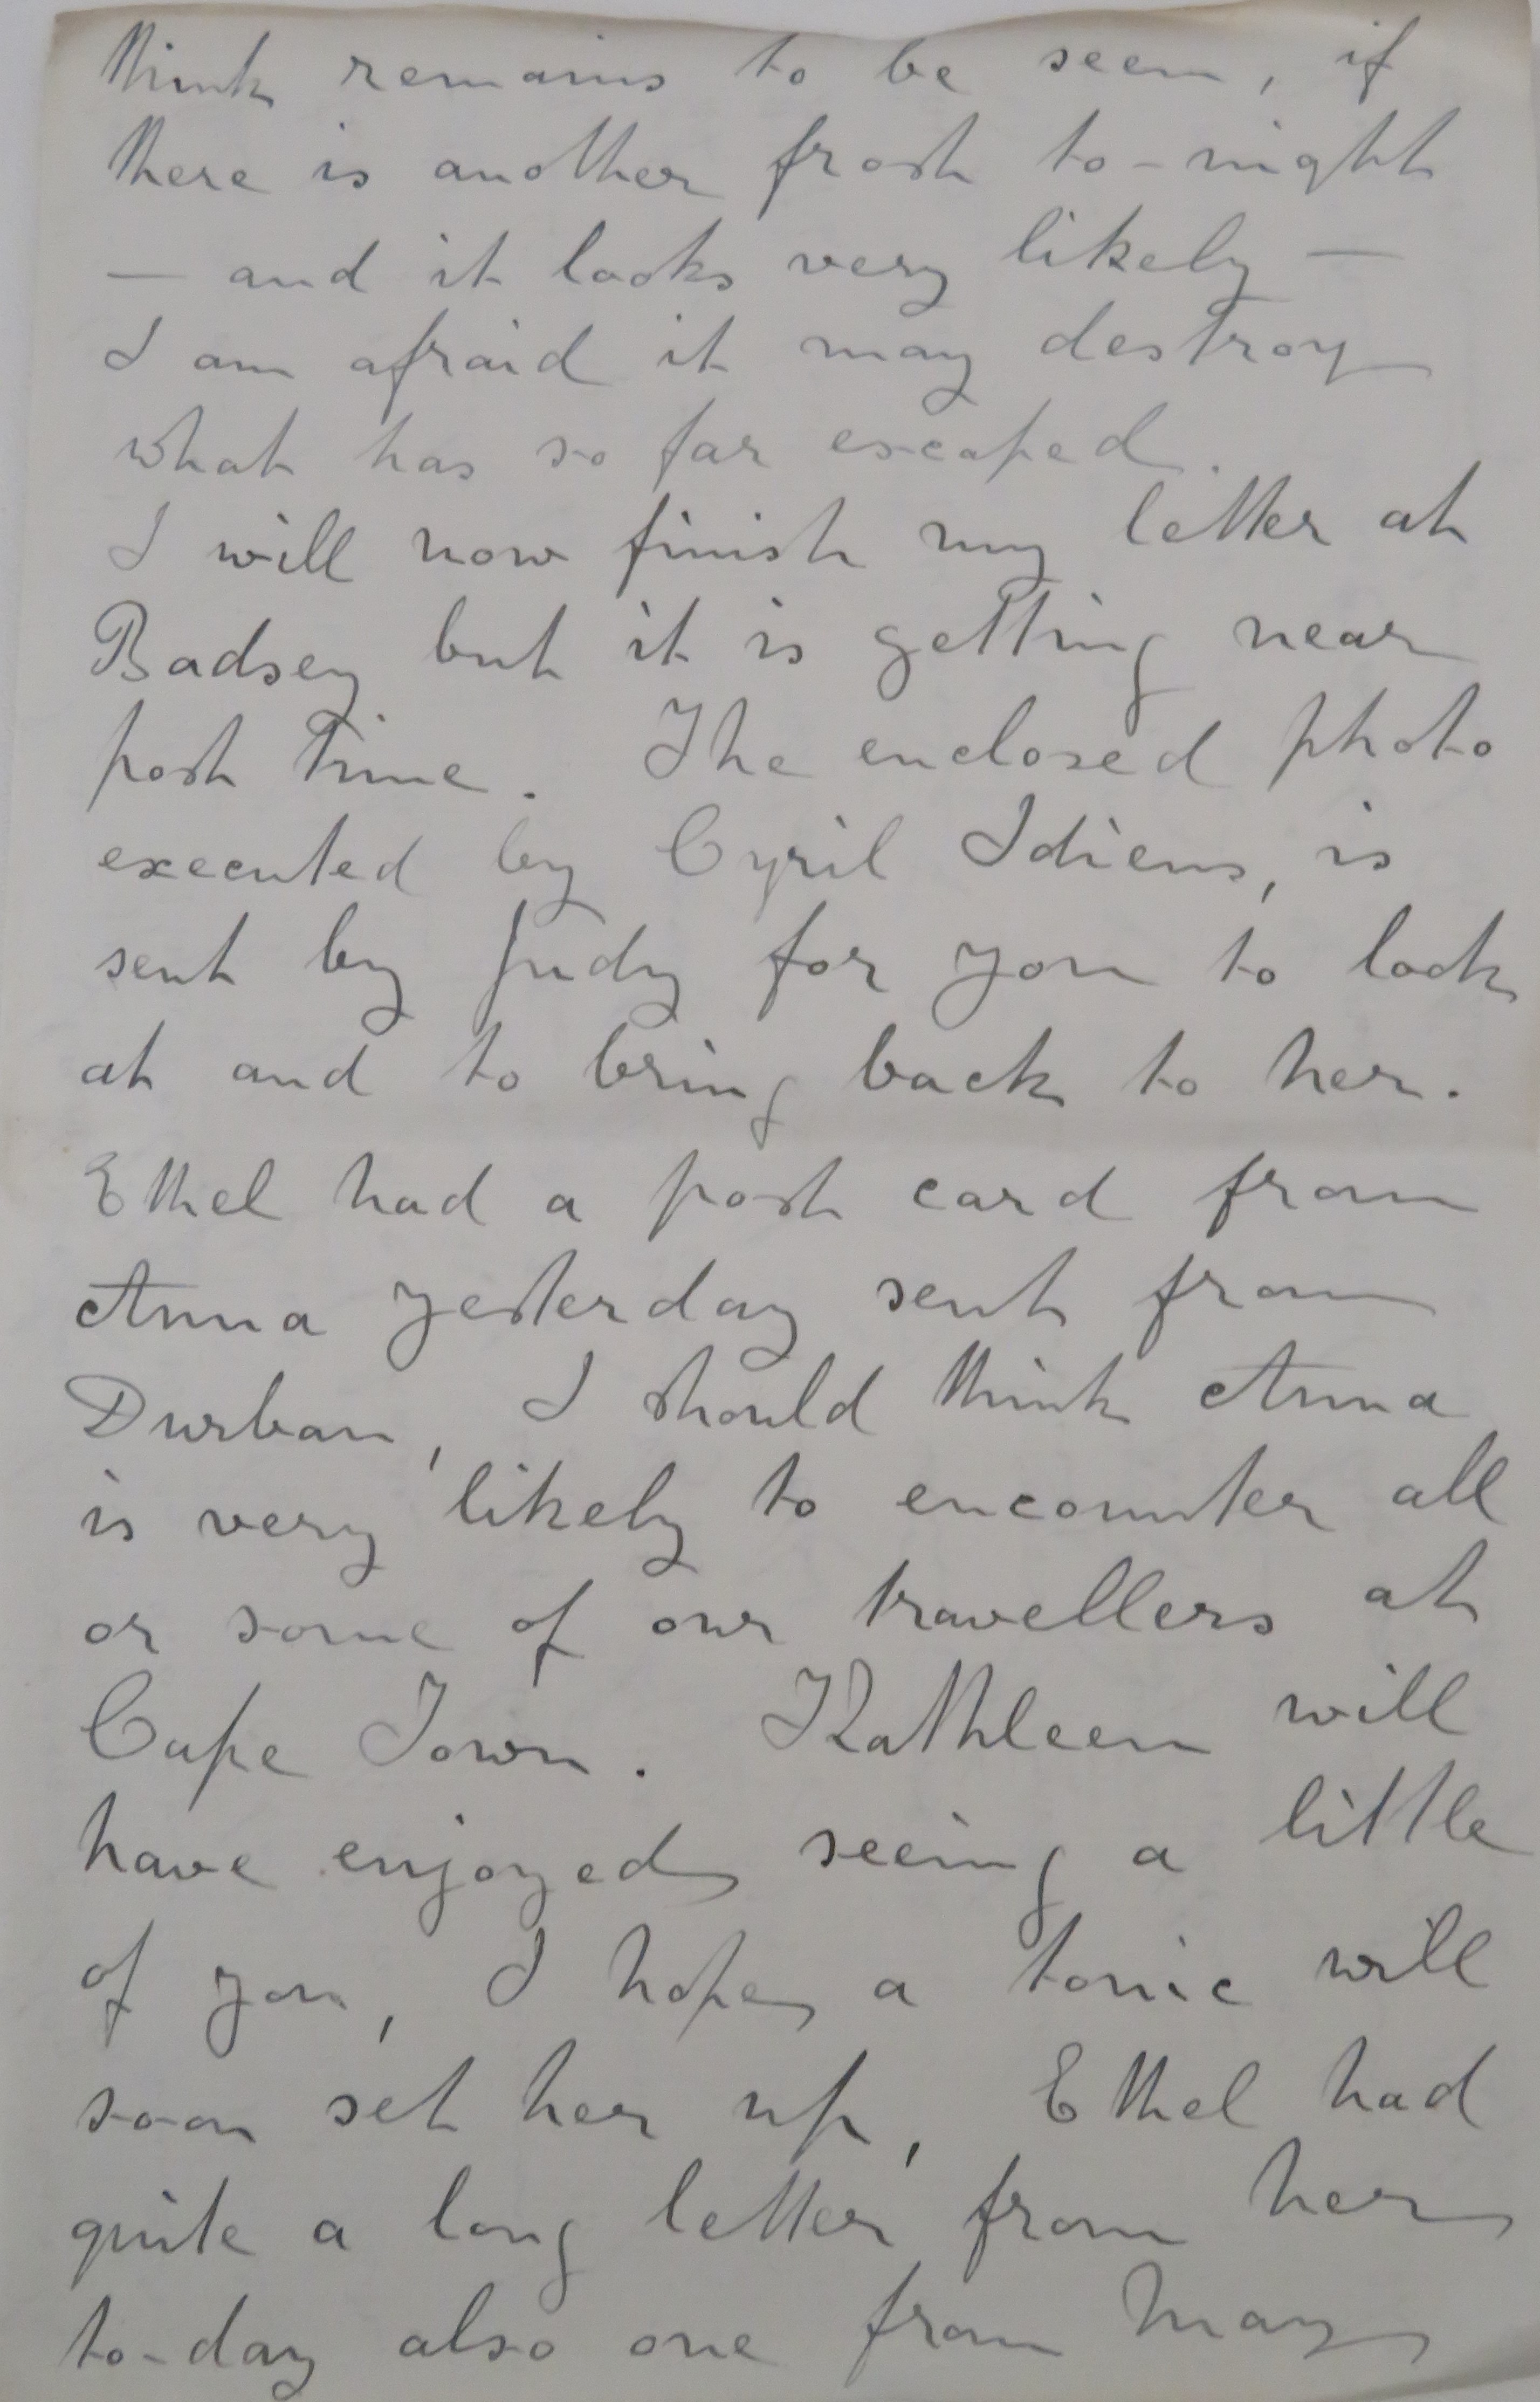 think remains to be seen, if
there is another frost to-night
— and it looks very likely —
I am afraid it may destroy
what has so far escaped.
I will now finish my letter at
Badsey but it is getting near
post time. The enclosed photo
executed by Cyril Idiens, is
sent by Judy for you to look
at and to bring back to her.
Ethel had a post card from
Anna yesterday sent from
Durban, I should think Anna
is very likely to encounter all
or some of our travellers at
Cape Town. Kathleen will
have enjoyed seeing a little
of you, I hope a tonic will
soon set her up, Ethel had
quite a long letter from her
to-day also one from May